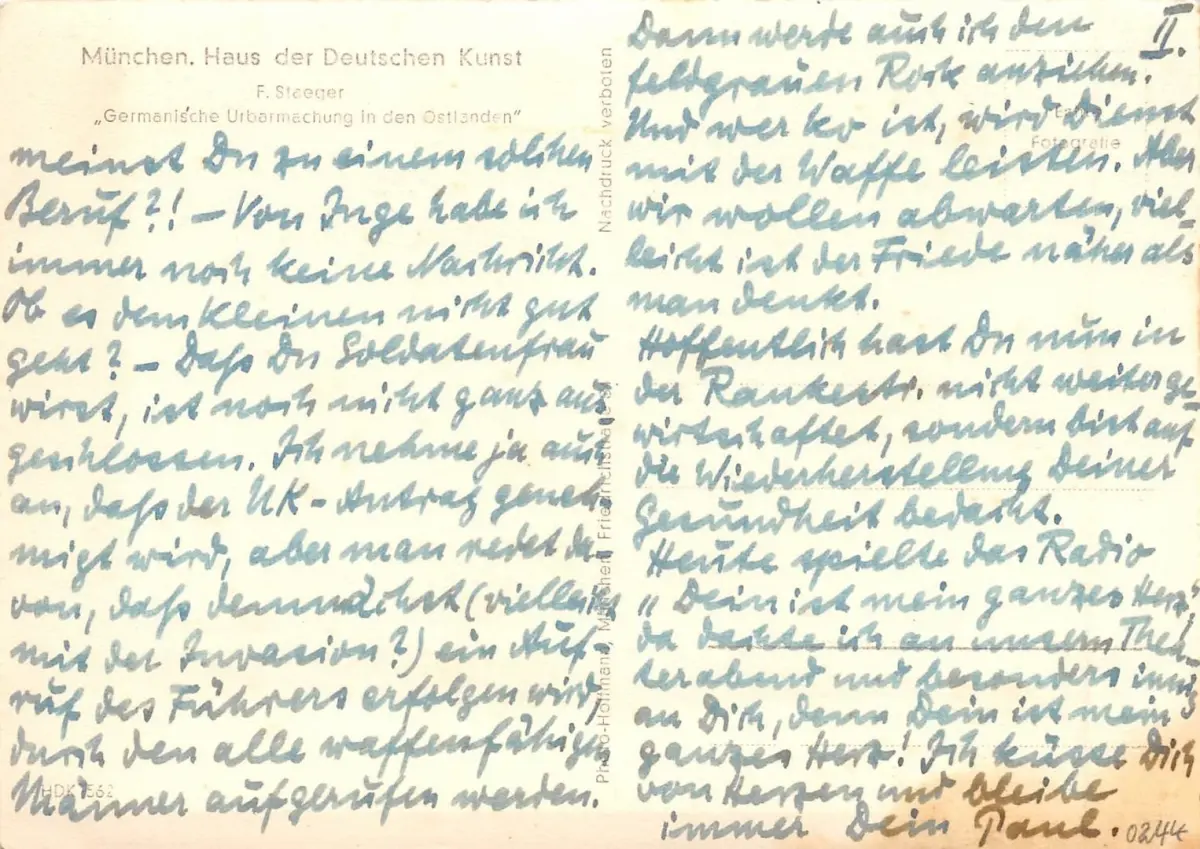 München. Haus der Deutschen Kunst
F. Staeger
„Germanische Urbarmachung in den Ostlanden“
meinst Du zu einem solchen
Beruf?! – Von Inge habe ich
immer noch keine Nachricht.
Ob es dem Kleinen nicht gut
geht? – Daß Du Soldatenfrau
wirst, ist noch nicht ganz aus
geschlossen. Ich nehme ja auch
an, daß der UK-Antrag geneh
migt wird, aber man redet da
von, daß demnächst (vielleicht
mit der Invasion?) ein Auf-
ruf des Führers erfolgen wird,
durch den alle waffenfähigen
Männer aufgerufen werden.
HDK 562
Nachdruck verboten
Photo-Hoffmann, München, Friedrichstraße
II.
Dann werde auch ich den
feldgrauen Rock anziehen.
Und wer ko ist, wird Dienst
mit der Waffe leisten. Aber
wir wollen abwarten, viel-
leicht ist der Friede näher als
man denkt.
Hoffentlich hast Du nun in
der Rankestr. nicht weiterge-
wirtschaftet, sondern bist auf
die Wiederherstellung Deiner
Gesundheit bedacht.
Heute spielte das Radio
„Dein ist mein ganzes Herz,
da dachte ich an unsern Thea-
terabend und besonders innig
an Dich, denn Dein ist mein
ganzes Herz! Ich küsse Dich
von Herzen und bleibe
immer Dein Paul.
Fotografie
0244